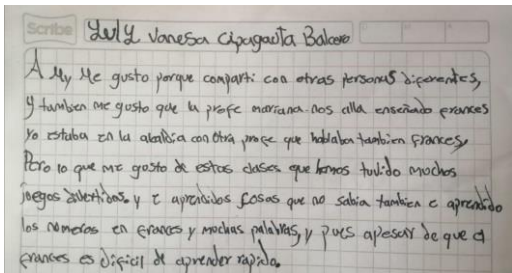 Scribe
Yuly Vanesa Cipagauta Balcero
A My Me gusto porque comparti con otras personas diferentes,
y tambien me gusto que la profe mariana nos alla enseñado frances
yo estaba en la alcaldia con otra profe que hablaba tambien frances,
Pero lo que me gosto de estas clases que hemos tuvido muchos
juegos divertidos, y e aprendidos cosas que no sabia tanbien e aprendido
los nomeros en frances y mochas palabras, y pues apesar de que el
frances es dificil de aprender rapido.